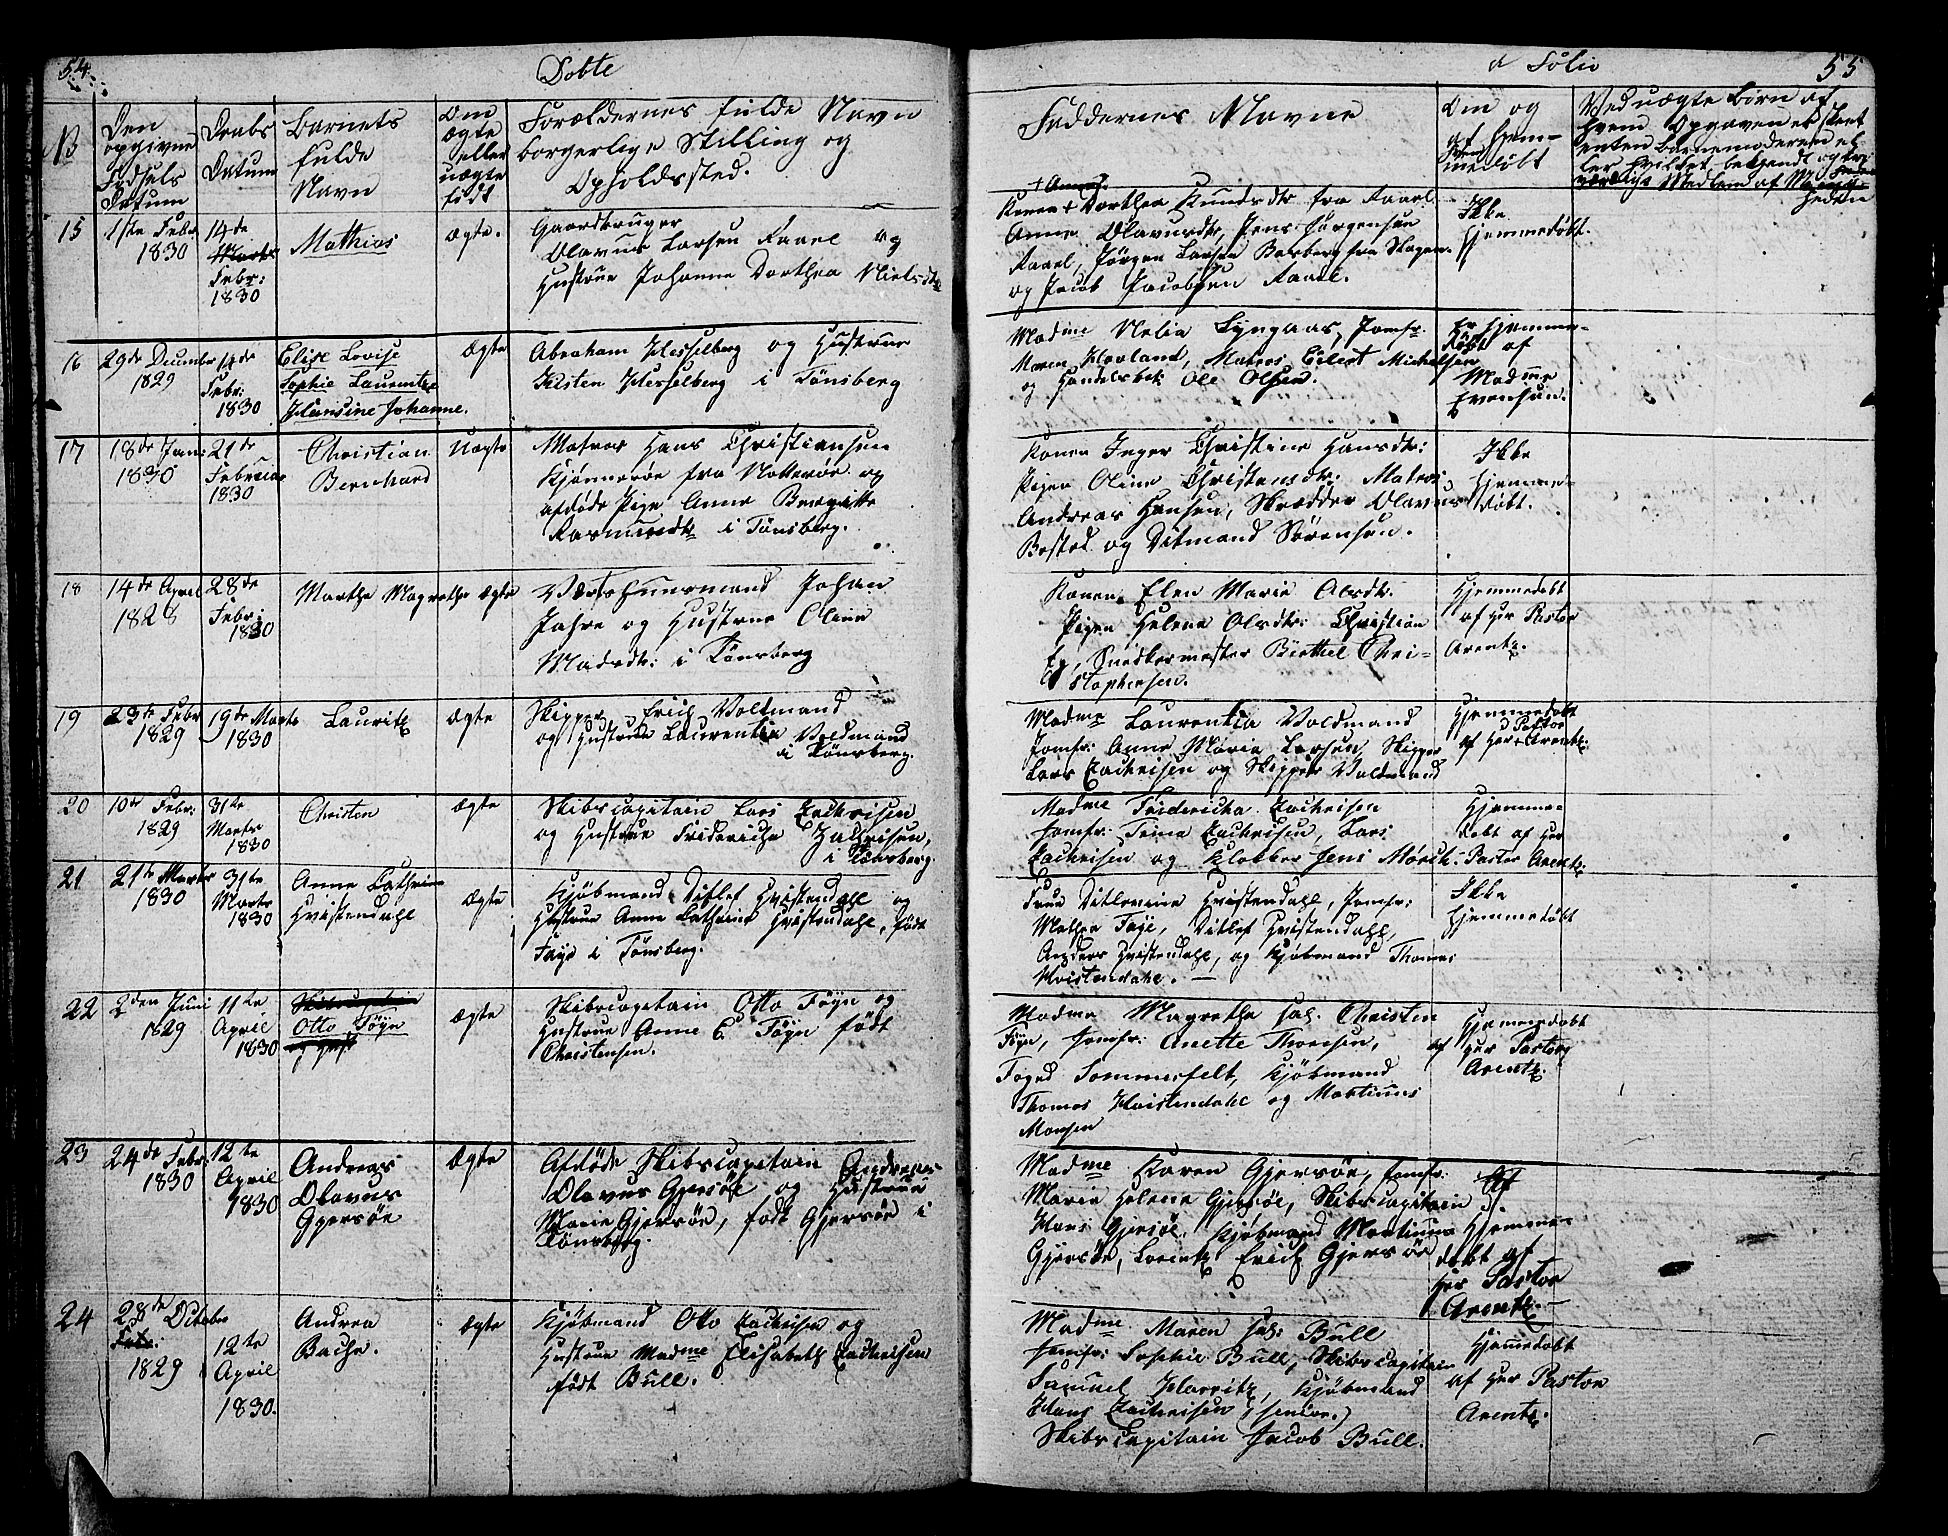 54
Døbte
N
Den
opgivne
Fødsels
Datum
Daabs
Datum
Barnets
fulde
Navn
Om
ægte
eller
uægte
født
Forældrenes fulde Navn
borgerlige Stilling og
Opholdssted.
15
1ste Febr
1830
14de
Marts
Febr:
1830
Mathias
ægte.
Gaardbruger
Olavus Larsen Raael og
Hustrue Johanne Dorthea Nielsdtr
16
29de Decembr
1829
14de
Febr:
1830
Elise Lovise
Sophie Laurentze
Hansine Johanne.
Ægte
Abraham Hesselberg og Hustrue
Kisten Hesselberg i Tønsberg
17
18de Jan:
1830
21de
Februar
1830
Christian
Bernhard
Uægte
Matros Hans Christiansen
Kjønnerøe fra Nøtterøe og
afdøde Pige Anne Bergitte
Rasmusdtr i Tønsberg.
18
14de April
1828
28de
Febr:
1830
Marthe Magrethe
Ægte
Værtshuusmand Johan
Jahre og Hustrue Oline
Madsdtr: i Tønsberg
19
23de Febr
1829
19de Marts
1830
Lauritz
Ægte
Skipper Erich Voldmand
og Hustrue Laurentia Voldmand
i Tønsberg.
20
10de Febr:
1829
31te
Marts
1830
Christen
Ægte
Skibscapitain Lars Zachrisen
og Hustrue Friderische Zachrisen,
i Tønsberg.
21
21te Marts
1830
31te
Marts
1830
Anne Cathrine
Hvistendahl
Ægte
Kjøbmand Ditlef Hvistendahl og
Hustrue Anne Cathrine Hvistendahl, født
Føyn i Tønsberg.
22
2den Juni
1829
11te
April
1830
Skibscapitain
Otto Føyn
og Hust
Ægte
Skibscapitain Otto Føyn og
Hustrue Anne E. Føyn født
Christensen.
23
24de Febr:
1830
12te
April
1830
Andreas
Olavus
Gjersøe
Ægte
Afdøde Skibscapitain Andreas
Olavus Gjersøe og Hustrue
Marie Gjersøe, født Gjersøe i
Tønsberg.
24
28de October
Febr:
1829
12te
April
1830.
Andrea
Bache.
Ægte
Kjøbmand Otto Zachrisen og
Hustrue Madme Elisabeth Zachrisen
født Bull.
Folio
55
Faddernes Navne
Om og
af hvem
hjemmedøbt
Ved uægte Børn af
hvem Opgaven er skeet
enten Barnemoderen el-
ler hvilket bekjendt og tro-
værdigt Medlem af Menig-
heden
+ Anne
Konen + Dorthea Knudsdtr fra Raael
Anne Olavusdtr, Jens Jørgensen
Raael, Jørgen Larsen Barberg fra Slagen
og Jacob Jacobsen Raael.
Ikke
hjemmedøbt.
Madme Nelia Lyngaas, Jomfr
Maren Hovland, Matros Eilert Michelsen
og Handelsbetj: Ole Olsen.
Er hjemme-
døbt af
Madme
Evensen.
Konen Inger Christine Hansdtr:
Pigen Oline Christensdtr: Matros
Andreas Hansen, Skrædder Olavus
Bosted og Ditmand Sørensen.
Ikke
hjemme-
døbt.
Konen Elen Marie Olsdtr.
Pigen Helene Olsdtr: Christian
Eg, Snedkermester Birthel Chri-
stophersen.
Hjemmedøbt
af Her Pastor
Arentz.
Madme Laurentia Voldmand
Jomfr: Anne Maria Larsen, Skipper
Lars Zachrisen og Skipper Voldmand
Hjemmedøbt
af Her Pastor Arentz.
Madme Fridericha Zachrisen
Jomfr: Trina Zachrisen, Lars
Zachrisen og Klokker Jens Mørch
Hjemme-
døbt af Her
Pastor Arentz.
Frue Ditlevine Hvistendahl, Jomfr:
Mathea Føye, Ditlef Hvistendahl,
Anders Hvistendahl, og Kjøbmand Thomas
Hvistendahl.
Ikke
hjemmedøbt
Madme Magrethe sal. Christen
Føyn, Jomfr: Anette Thoresen,
Foged Sommerfelt, Kjøbmand
Thomas Hvistendahl og Martinus
Monsen
Hjemmedøbt
af Her Pastor
Arentz.
Madme Karen Gjersøe, Jomfr:
Marie Helene Gjersøe, Skibscapitain
Hans Gjersøe, Kjøbmand Martinus
Gjersøe, Lorentz Erich Gjersøe
Af
Hjemme-
døbt af
Her Pastor
Arentz.
Madme Maren sal: Bull
Jomfr: Sophie Bull, Skibscapitain
Samuel Harritz, Kjøbmand
Hans Zachrisen (senior.)
Skibscapitain Jacob Bull.
Hjemmedøbt
af Her Pastor
Arentz.